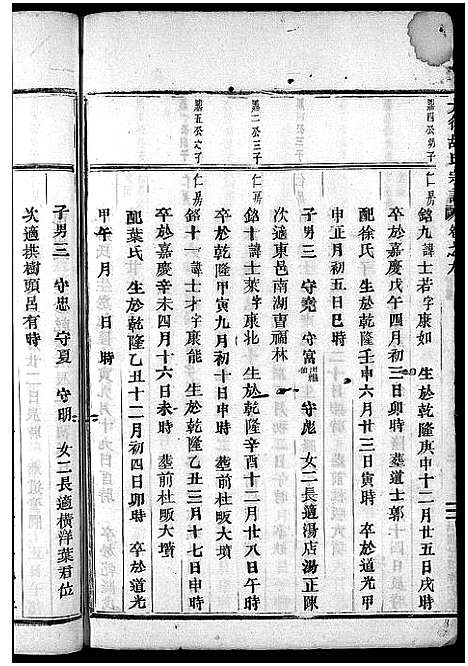 銘九諱士若字康如 生於乾隆庚申十二月廿五日戌時
卒於嘉慶戊午四月初三日卯時 葬道士郭
配徐氏 生於乾隆壬申六月廿三日寅時 卒於道光甲
申正月初五日巳時
子男三 守堯 守富 守彪 女二長適湯店湯正陳
次適東邑南湖曹福林
二公三子 仁房
銘十諱士萊字東北 生於乾隆辛酉十二月廿八日午時
卒於乾隆甲寅九月初十日申時 葬前杜畈大墳
五公次子 仁房
銘十一諱士才字東能 生於乾隆乙丑三月十七日申時
卒於嘉慶辛未四月十六日未時 葬前杜畈大墳
配葉氏 生於乾隆乙丑十二月初四日卯時 卒於道光
甲午 月 日 時
子男三 守忠 守夏 守明 女二長適橫洋葉君位
次適拱樹頭呂有時